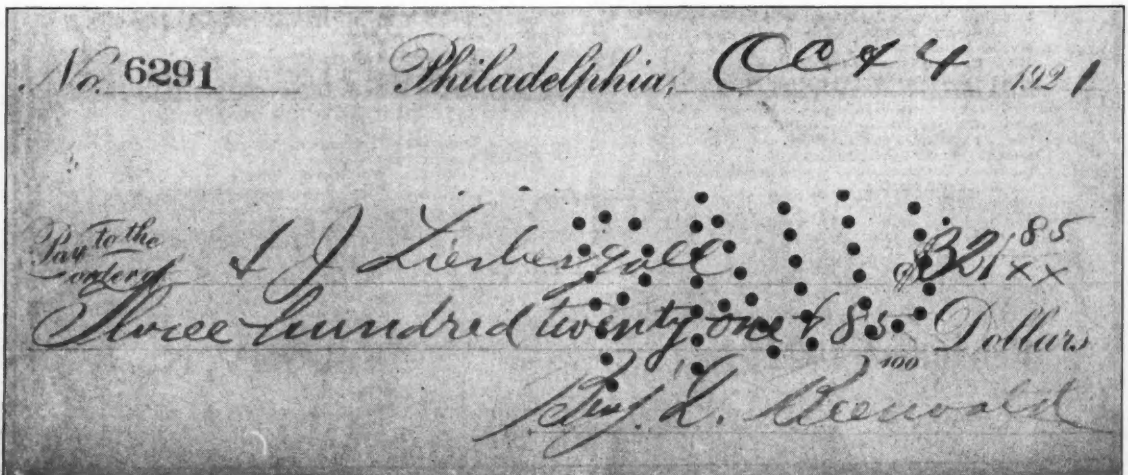 No. 6291 Philadelphia, Oct 4 1921
Pay to the order of J $321 85 xx
Three hundred twenty one & 85 100 Dollars
Benj. L.